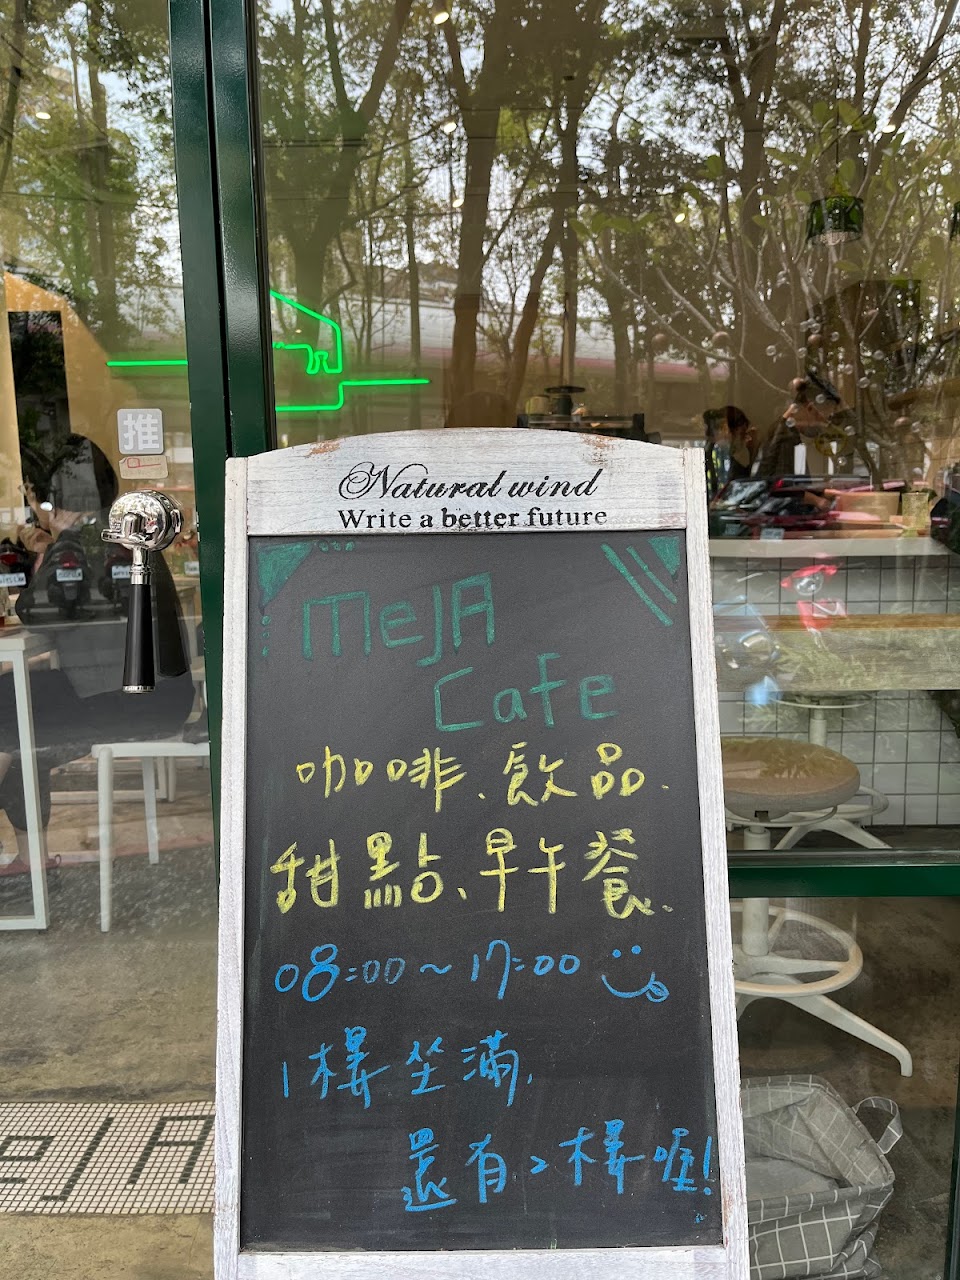 推
Natural wind
Write a better future
MeJA
Cafe
咖啡、飲品.
甜點、早午餐.
08:00～17:00
1樓坐滿,
還有2樓喔!
eJA